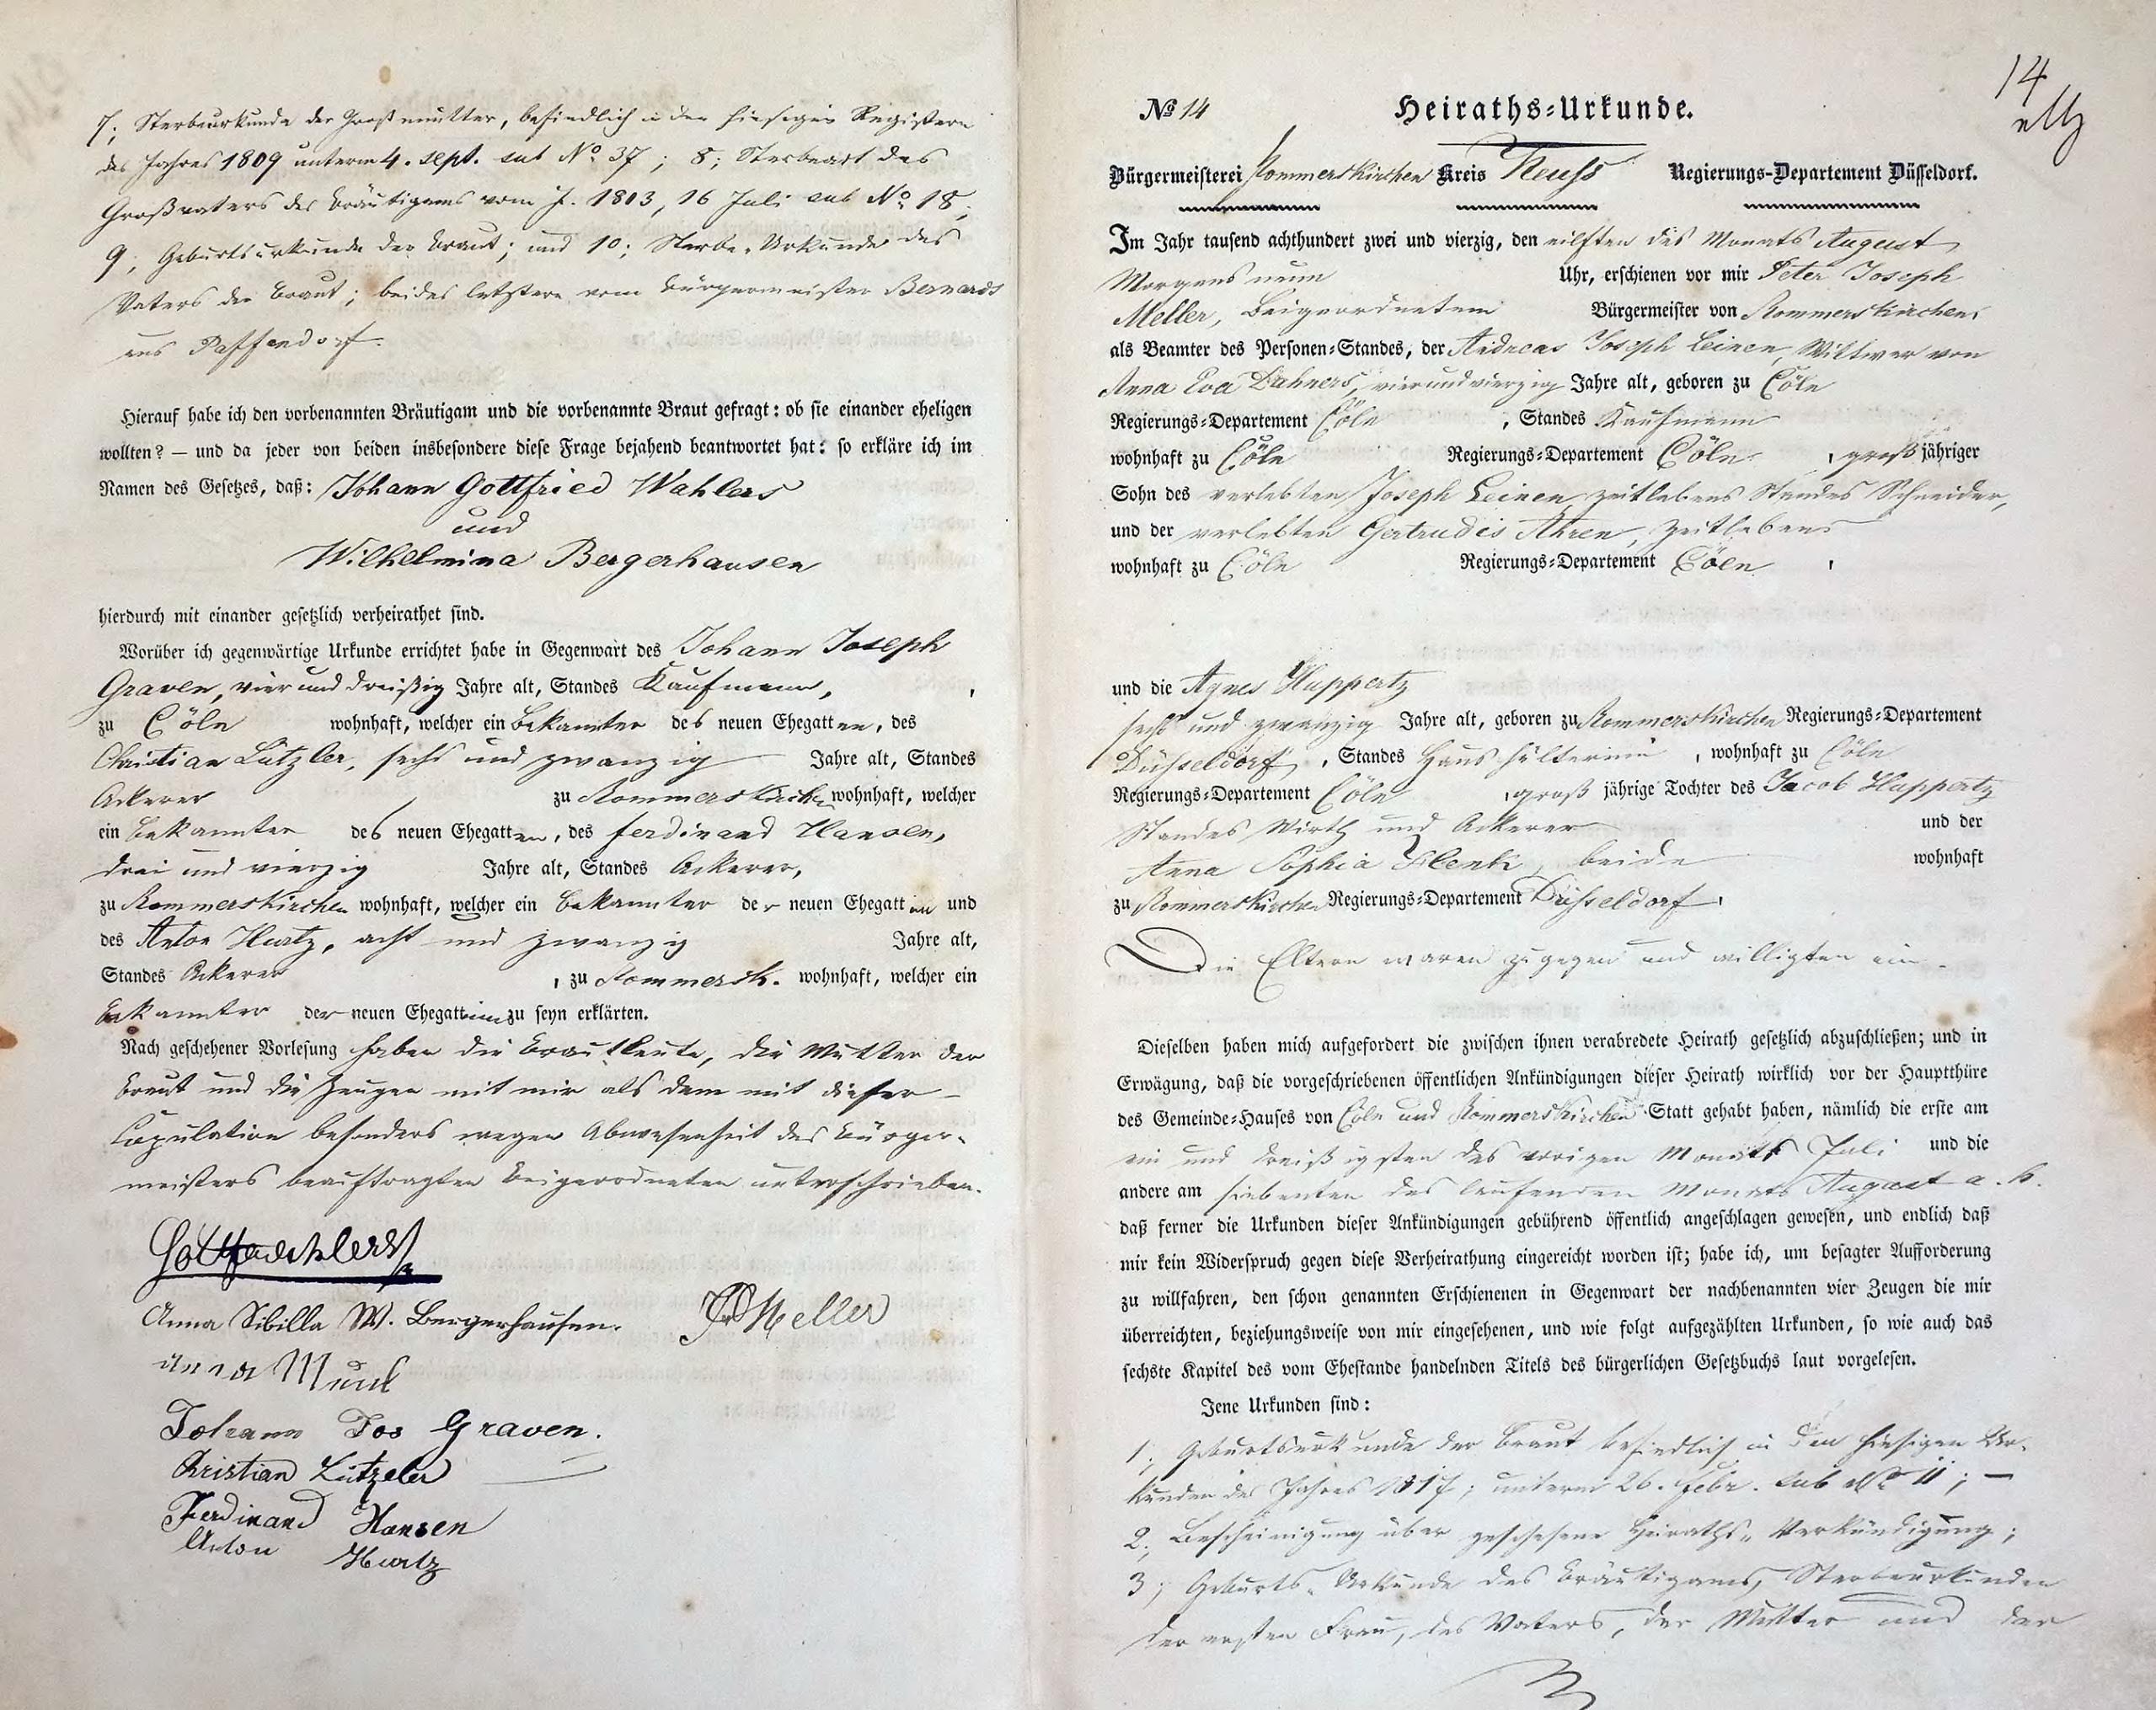 7; Sterbeurkunde der Großmutter, befindlich in den hiesigen Registern
des Jahres 1809 unterm 4. sept. sub No. 37; 8; Sterbeact des
Großvaters des Bräutigams vom J. 1813, 16 Juli sub No 18;
9; Geburtsurkunde der Braut; und 10; Sterbe-Urkunde des
Vaters der Braut; beides letztere vom Bürgermeister Bernards
aus Paffendorf.
Hierauf habe ich den vorbenannten Bräutigam und die vorbenannte Braut gefragt: ob sie einander eheligen
wollten? — und da jeder von beiden insbesondere diese Frage bejahend beantwortet hat: so erkläre ich im
Namen des Gesetzes, daß: Johann Gottfried Wahlers
und
Wilhelmina Bergerhausen
hierdurch mit einander gesetzlich verheirathet sind.
Worüber ich gegenwärtige Urkunde errichtet habe in Gegenwart des Johann Joseph
Graven, vier und dreißig Jahre alt, Standes Kaufmann,
zu Cöln wohnhaft, welcher ein Bekannter des neuen Ehegatten, des
Christian Lützler, sechs und zwanzig Jahre alt, Standes
Ackerer zu Rommerskirchen wohnhaft, welcher
ein Bekannter des neuen Ehegatten, des ferdinand Hansen,
drei und vierzig Jahre alt, Standes Ackerer,
zu Rommerskirchen wohnhaft, welcher ein Bekannter der neuen Ehegattin und
des Anton Hurtz, acht und zwanzig Jahre alt,
Standes Ackerer, zu Rommersk. wohnhaft, welcher ein
Bekannter der neuen Ehegattin zu seyn erklärten.
Nach geschehener Vorlesung haben die Brautleute, die Mutter der
Braut und die Zeugen mit mir als dem mit dieser
Copulation besonders wegen Abwesenheit des Bürger-
meisters beauftragten Beigeordneten unterschrieben.
Anna Sibilla W. Bergerhausen. Meller
anna
Johann Jos Graven.
Kristian Lützeler
Ferdinand Hansen
Anton Hurtz
14
No 14 Heiraths-Urkunde.
Bürgermeisterei Rommerskirchen Kreis Neuss Regierungs-Departement Düsseldorf.
Im Jahr tausend achthundert zwei und vierzig, den eilften des Monats August
Morgens neun Uhr, erschienen vor mir Peter Joseph
Meller, Beigeordnetem Bürgermeister von Rommerskirchen,
als Beamter des Personen-Standes, der Andreas Joseph Leinen, Wittwer von
Anna Eva Dahners, vierundvierzig Jahre alt, geboren zu Cöln
Regierungs-Departement Cöln, Standes Kaufmann
wohnhaft zu Cöln Regierungs-Departement Cöln, großjähriger
Sohn des verlebten Joseph Leinen, zeitlebens Standes Schneider,
und der verlebten Gertrudis Ahren, zeitlebens
wohnhaft zu Cöln Regierungs-Departement Cöln,
und die Agnes Huppertz
sechs und zwanzig Jahre alt, geboren zu Rommerskirchen Regierungs-Departement
Düsseldorf, Standes Haushälterin, wohnhaft zu Cöln
Regierungs-Departement Cöln, groß jährige Tochter des Jacob Huppertz
Standes Wirth und Ackerer und der
Anna Sophia beide wohnhaft
zu Rommerskirchen Regierungs-Departement Düsseldorf.
Die Eltern waren zugegen und willigten ein.
Dieselben haben mich aufgefordert die zwischen ihnen verabredete Heirath gesetzlich abzuschließen; und in
Erwägung, daß die vorgeschriebenen öffentlichen Ankündigungen dieser Heirath wirklich vor der Hauptthüre
des Gemeinde-Hauses von Cöln und Rommerskirchen Statt gehabt haben, nämlich die erste am
ein und dreißigsten des vorigen Monats Juli und die
andere am siebenten des laufenden Monats August
daß ferner die Urkunden dieser Ankündigungen gebührend öffentlich angeschlagen gewesen, und endlich daß
mir kein Widerspruch gegen diese Verheirathung eingereicht worden ist; habe ich, um besagter Aufforderung
zu willfahren, den schon genannten Erschienenen in Gegenwart der nachbenannten vier Zeugen die mir
überreichten, beziehungsweise von mir eingesehenen, und wie folgt aufgezählten Urkunden, so wie auch das
sechste Kapitel des vom Ehestande handelnden Titels des bürgerlichen Gesetzbuchs laut vorgelesen.
Jene Urkunden sind:
1; Geburtsurkunde der Braut befindlich in den hiesigen Ur-
kunden des Jahres 1817; unterm 26. febr. sub No 11; —
2; Bescheinigung über geschehene Heiraths-Verkündigung;
3; Geburts-Urkunde des Bräutigams, Sterbeurkunden
der ersten Frau, des Vaters, der Mutter und der